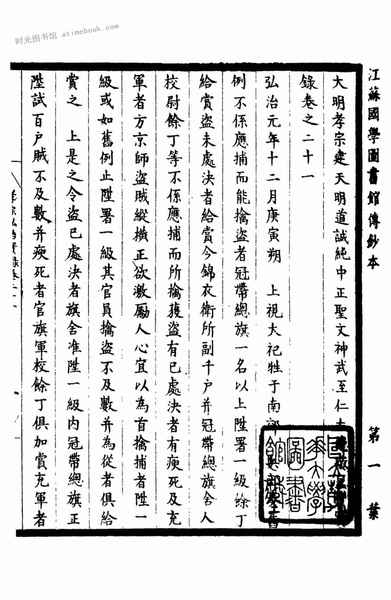 时光图书馆 atimebook.com
江蘇國學圖書館傳鈔本 第一葉
大明孝宗建天明道誠純中正聖文神武至仁大
錄卷之二十一
弘治元年十二月庚寅朔 上視大祀牲于南郊
例不係應捕而能擒盜者冠帶總旗一名以上陞署一級餘丁
給賞盜未處決者給賞今錦衣衛所副千户并冠帶總旗舍人
校尉餘丁等不係應捕而所擒獲盜有已處決者有瘐死及充
軍者方京師盜賊縱橫正欲激勵人心宜以為首擒捕者陞一
級或如舊例止陞署一級其官員擒盜不及數并為從者俱給
賞之 上是之令盜已處決者旗舍准陞一級内冠帶總旗正
陞試百户賊不及數并瘐死者官旗軍校餘丁俱加賞充軍者